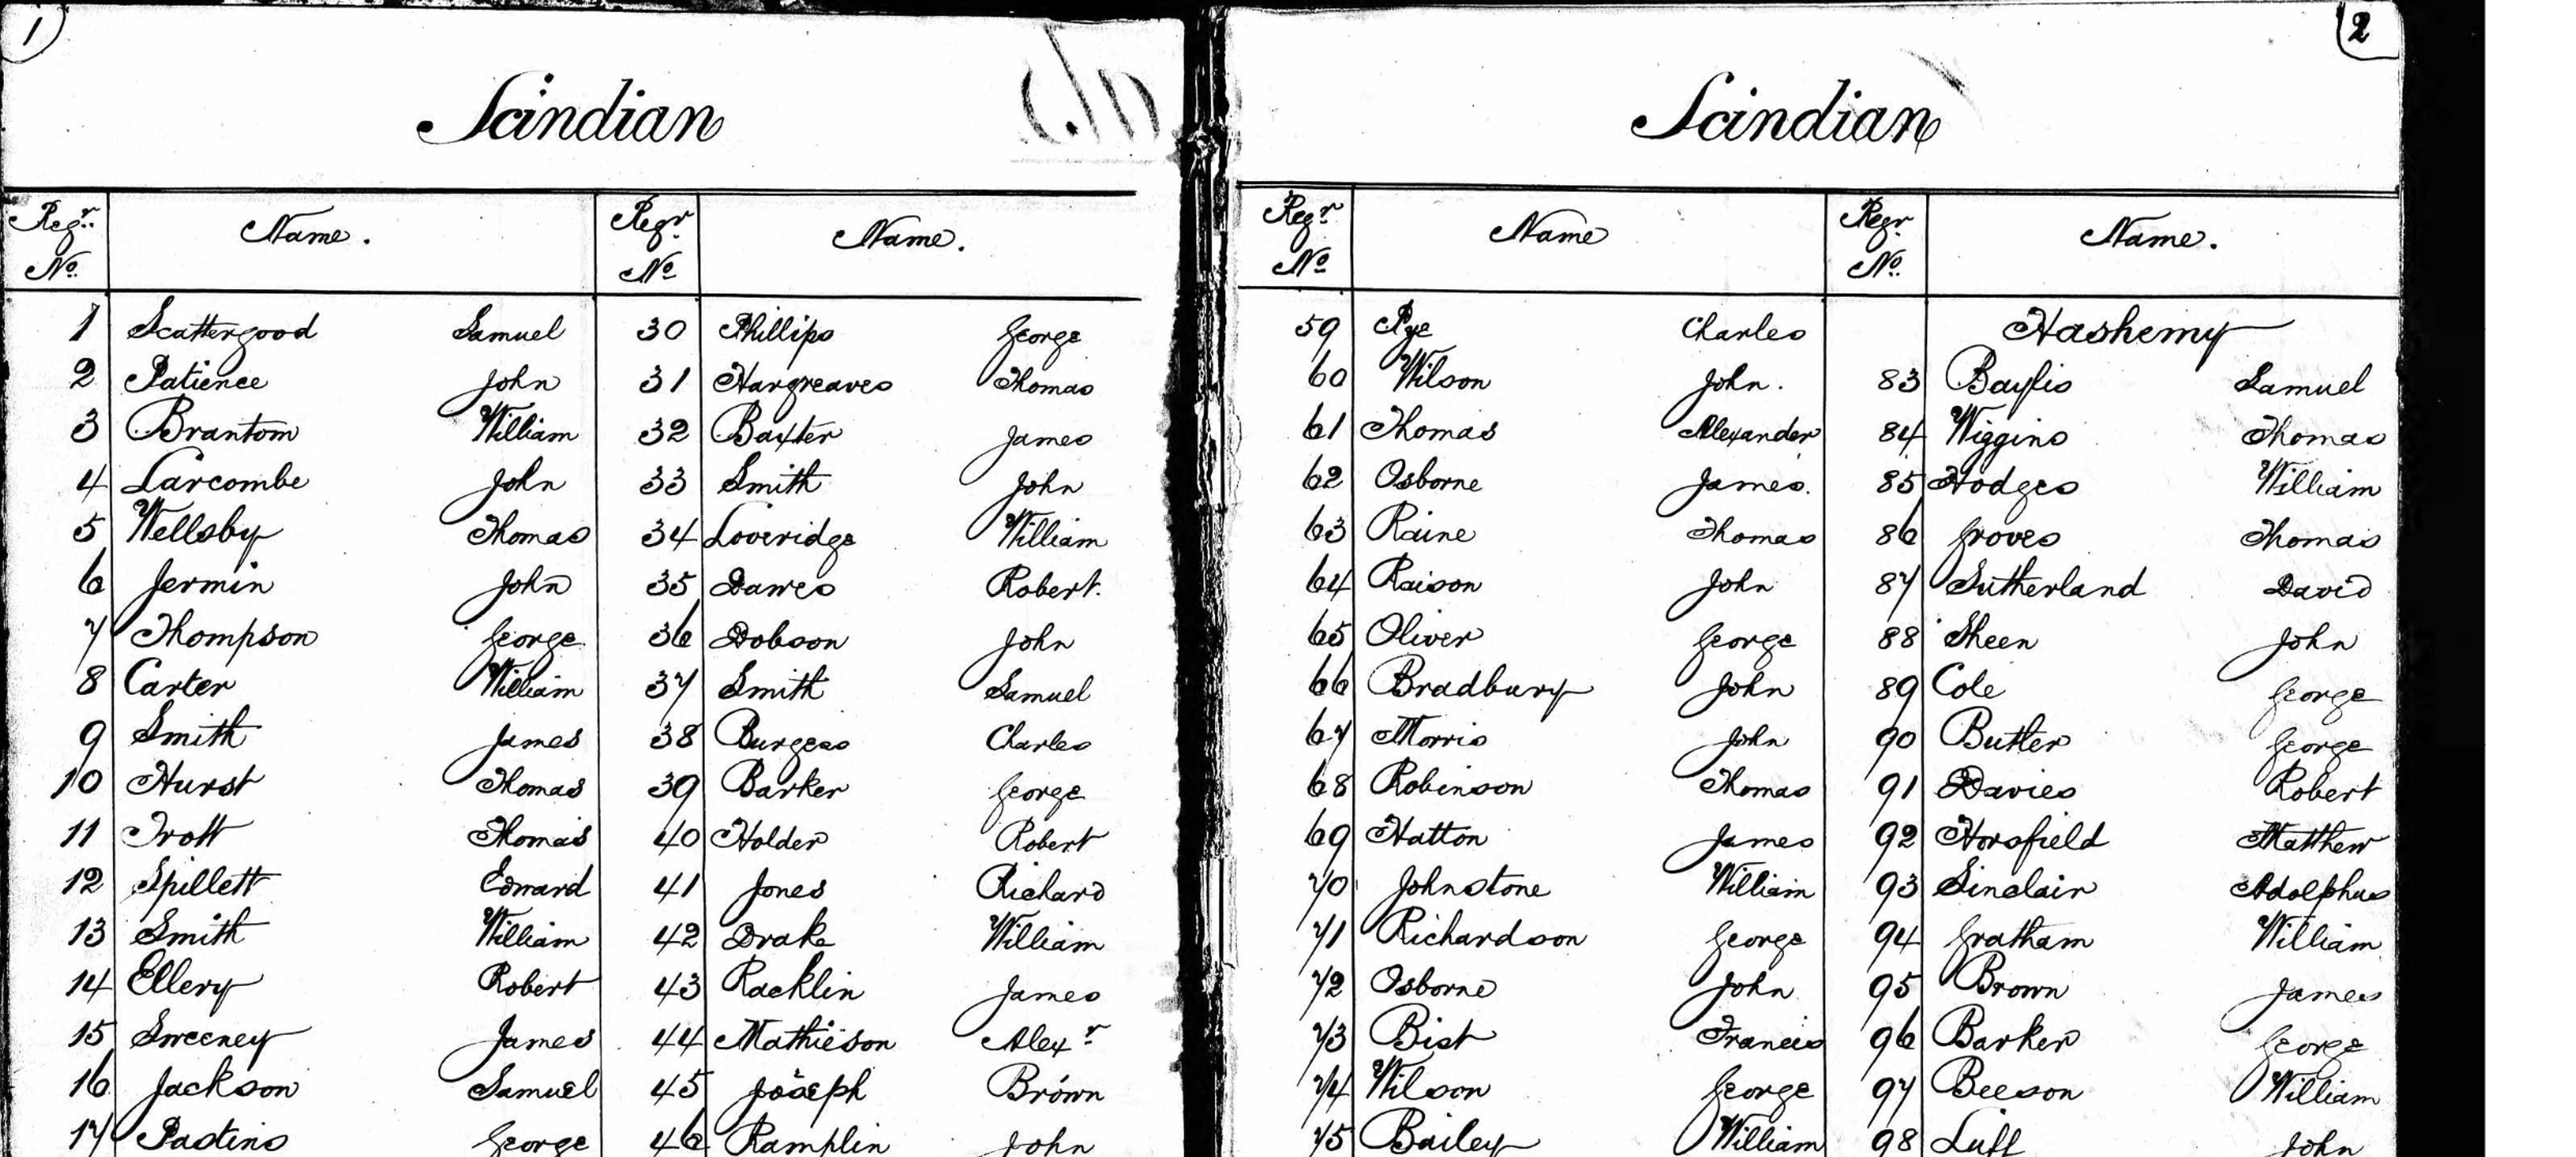 1
Scindian
Regr. No.
Name.
Regr. No
Name.
1 Scattergood Samuel
2 Patience John
3 Brantom William
4 Larcombe John
5 Wellsby Thomas
6 Jermin John
7 Thompson George
8 Carter William
9 Smith James
10 Hurst Thomas
11 Trott Thomas
12 Spillett Edward
13 Smith William
14 Ellery Robert
15 Sweeney James
16 Jackson Samuel
17 Pastins George
30 Phillips George
31 Hargreaves Thomas
32 Baxter James
33 Smith John
34 Loveridge William
35 Dawes Robert.
36 Dobson John
37 Smith Samuel
38 Burgess Charles
39 Barker George
40 Holder Robert
41 Jones Richard
42 Drake William
43 Racklin James
44 Mathieson Alexr
45 Joseph Brown
46 Ramplin John
2
Scindian
Regr. No
Name
Regr. No.
Name.
59 Pye Charles
60 Wilson John.
61 Thomas Alexander
62 Osborne James.
63 Raine Thomas
64 Raison John
65 Oliver George
66 Bradbury John
67 Morris John
68 Robinson Thomas
69 Hatton James
70 Johnstone William
71 Richardson George
72 Osborne John
73 Bist Francis
74 Wilson George
75 Bailey William
Hashemy
83 Baylis Samuel
84 Wiggins Thomas
85 Hodges William
86 Groves Thomas
87 Sutherland David
88 Sheen John
89 Cole George
90 Butler George
91 Davies Robert
92 Horsfield Matthew
93 Sinclair Adolphus
94 Gratham William
95 Brown James
96 Barker George
97 Beeson William
98 Luff John